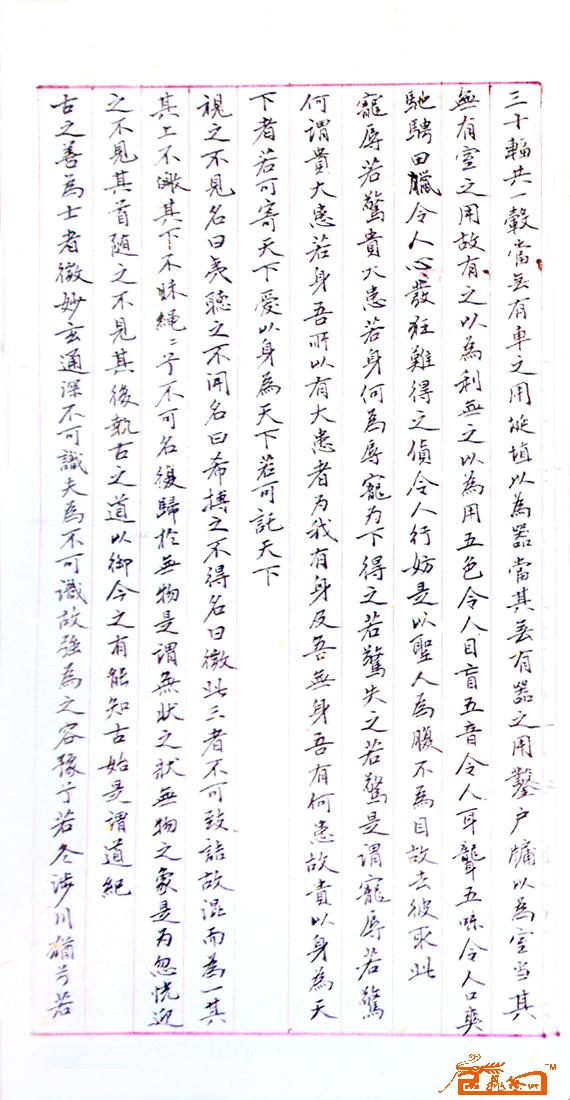 三十輻共一轂當無有車之用埏埴以為器當其無有器之用鑿户牖以為室当其
無有室之用故有之以為利無之以為用五色令人目盲五音令人耳聾五味令人口爽
馳騁田臘令人心發狂難得之貨令人行妨是以聖人為腹不為目故去彼取此
寵辱若驚貴大患若身何為辱寵为下得之若驚失之若驚是謂寵辱若驚
何謂貴大患若身吾所以有大患者为我有身及吾無身吾有何患故貴以身為天
下者若可寄天下愛以身為天下若可託天下
視之不見名曰夷聽之不聞名曰希搏之不得名曰微此三者不可致詰故混而為一其
其上不皦其下不昧繩〻兮不可名復歸於無物是謂無狀之狀無物之象是为忽恍迎
之不見其首随之不見其後執古之道以御今之有能知古始是謂道紀
古之善為士者微妙玄通深不可識夫為不可識故強為之容豫兮若冬涉川猶兮若